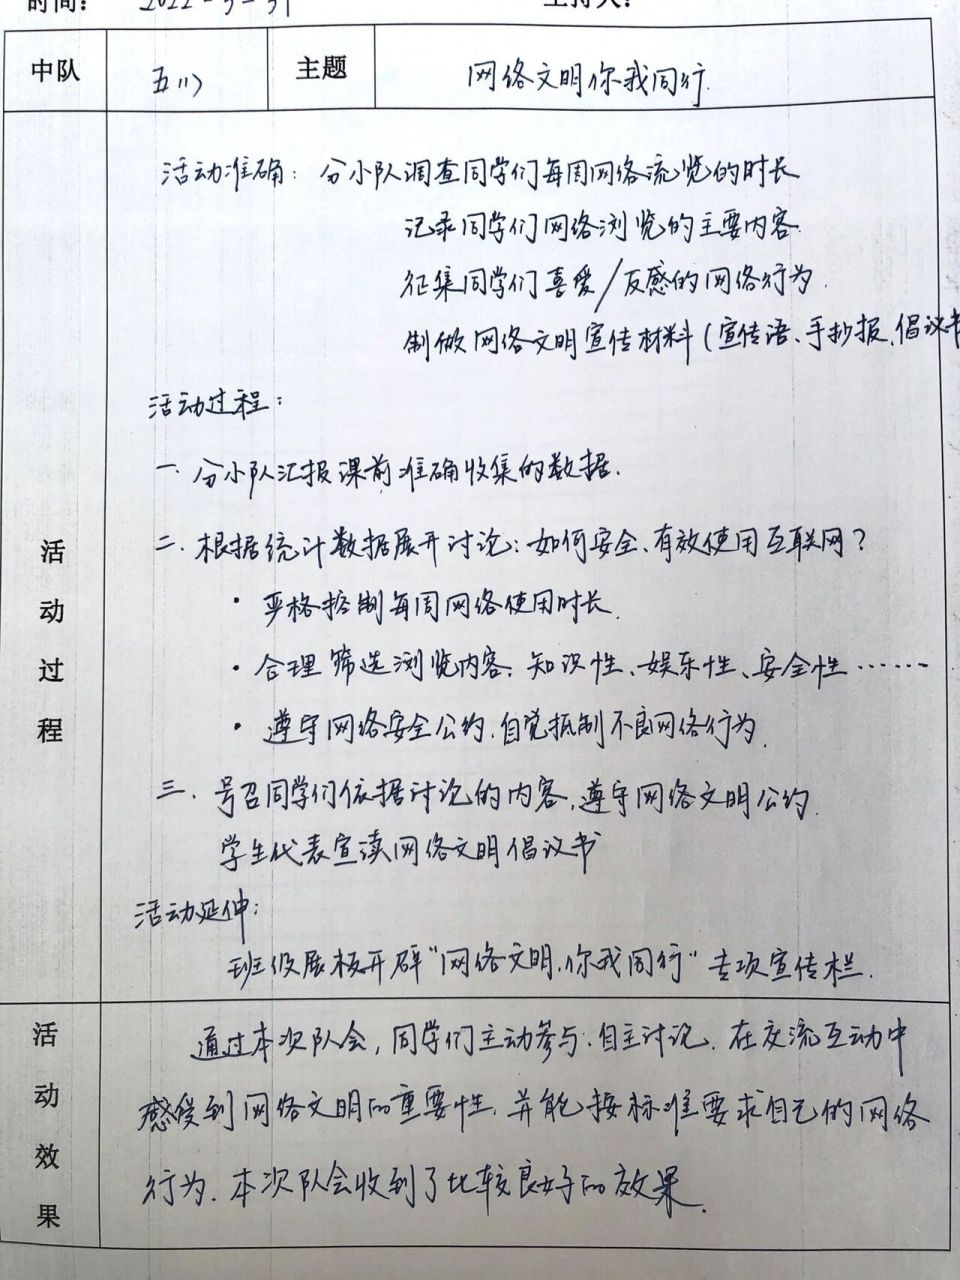 时间： 2022-3-31 主持人：
中队 五（1） 主题 网络文明你我同行.
活动准确：分小队调查同学们每周网络流览的时长
记录同学们网络浏览的主要内容.
征集同学们喜爱/反感的网络行为.
制做网络文明宣传材料(宣传语、手抄报、倡议书
活动过程：
一.分小队汇报课前准确收集的数据.
二.根据统计数据展开讨论：如何安全、有效使用互联网？
·严格控制每周网络使用时长.
·合理筛选浏览内容、知识性、娱乐性、安全性……
·遵守网络安全公约.自觉抵制不良网络行为.
三、号召同学们依据讨论的内容，遵守网络文明公约.
学生代表宣读网络文明倡议书
活动延伸：
班级展板开辟“网络文明，你我同行”专项宣传栏.
活动过程
通过本次队会，同学们主动参与.自主讨论.在交流互动中
感受到网络文明的重要性，并能按标准要求自己的网络
行为.本次队会收到了比较良好的效果.
活动效果